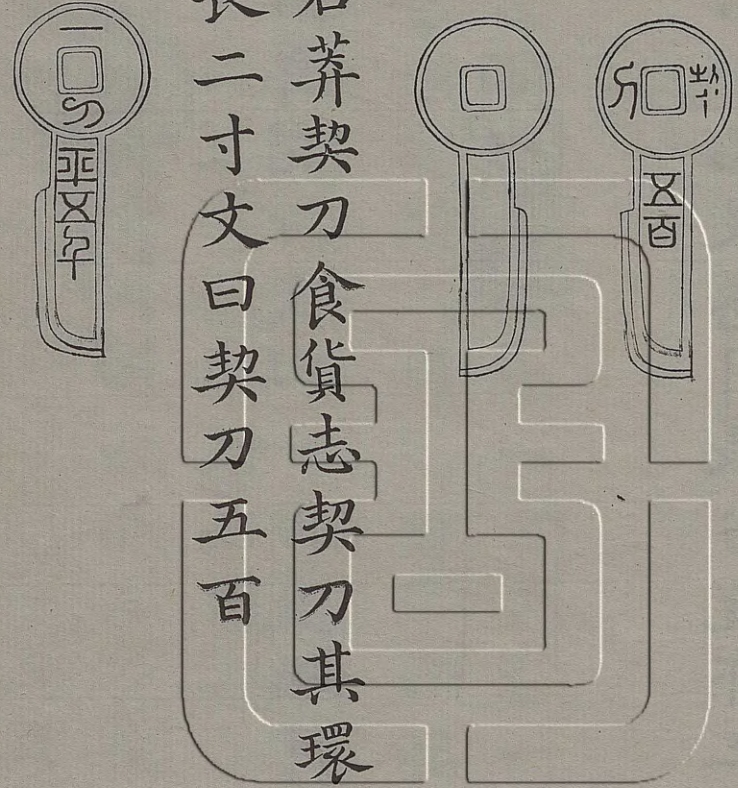 契刀
五百
右莽契刀食貨志契刀其環
長二寸文曰契刀五百
一刀
平五千